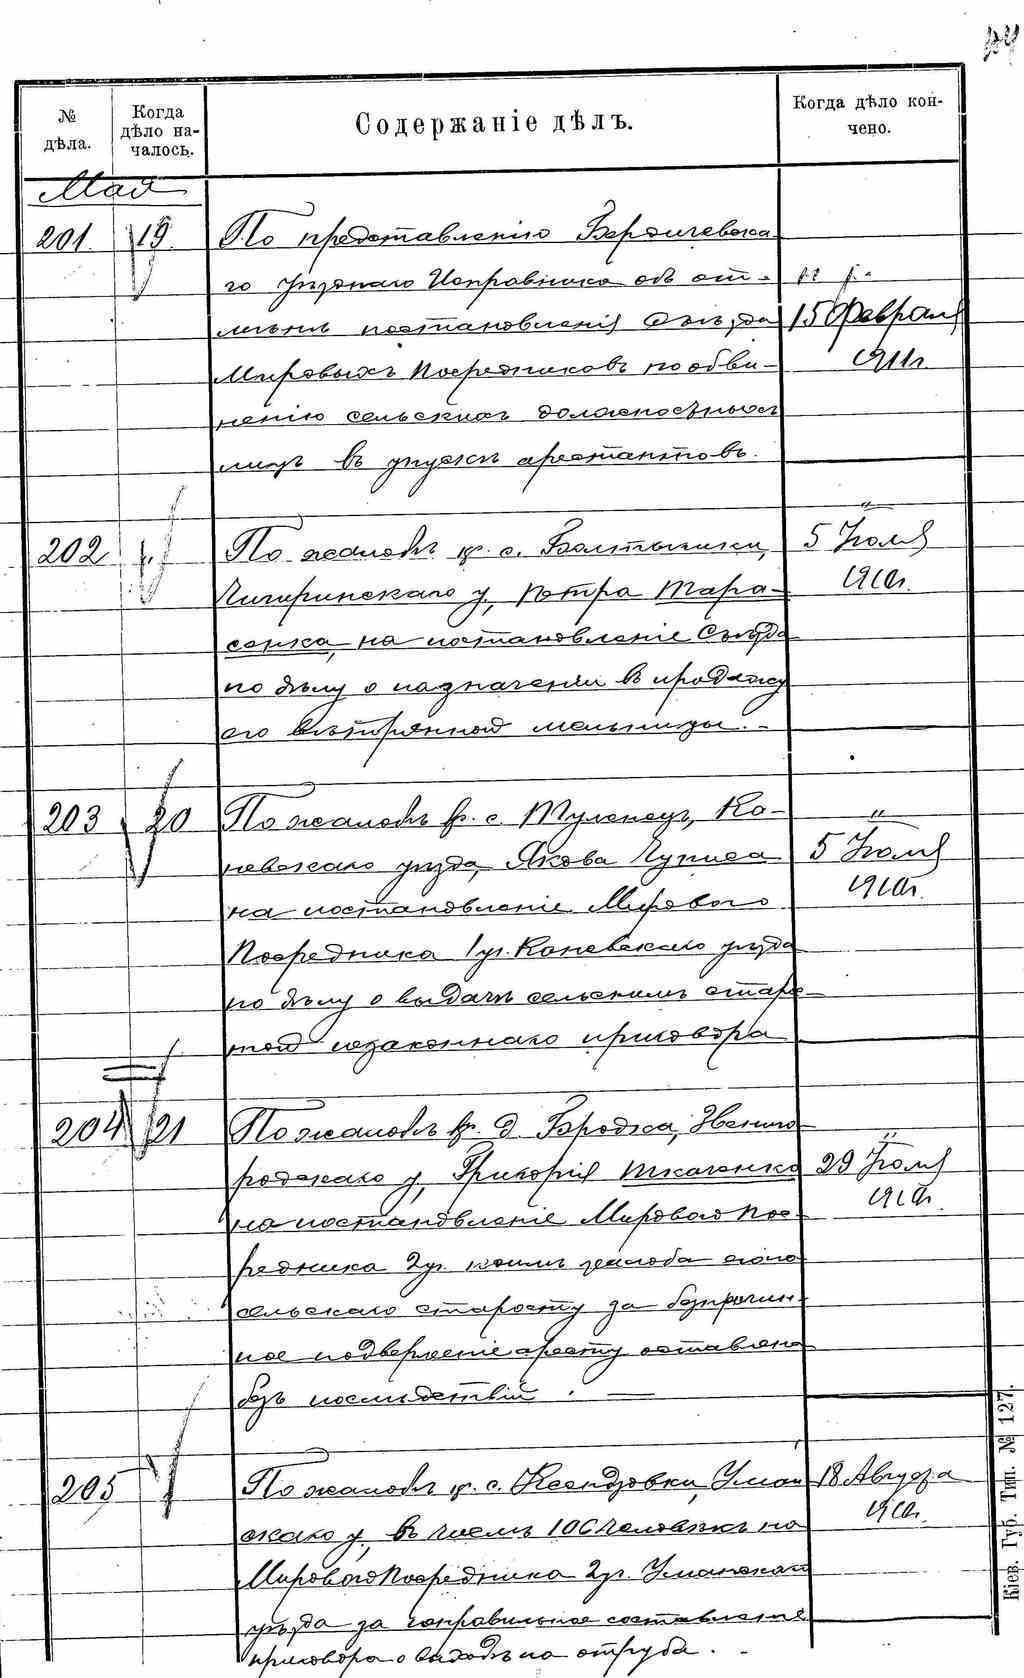 № дѣла.
Когда дѣло началось.
Содержаніе дѣлъ.
Когда дѣло кончено.
Мая
201. 19. По представленію Бердичевска-
го уѣзднаго Исправника объ от-
мѣнѣ постановленія Съѣзда
Мировыхъ Посредниковъ по обви-
ненію сельскихъ должностныхъ
лицъ въ упускѣ арестантовъ.
15 Февраля
1911г.
202 По жалобѣ кр. с. Болтышки,
Чигиринскаго у, Петра Тара-
сенка, на постановленіе Съѣзда
по дѣлу о назначеніи въ продажу
его вѣтрянной мельницы. -
5 Іюля
1910г.
203 20 По жалобѣ кр. с. Тулинецъ, Ка-
невскаго уѣзда, Якова
на постановленіе Мирового
Посредника 1 уч. Каневскаго уѣзда
по дѣлу о выдачѣ сельскимъ старо-
стой незаконнаго приговора
5 Іюля
1910г.
204 21 По жалобѣ кр. д. Бродка, Звениго-
родскаго у, Григорія Ткаченко
на постановленіе Мирового Пос-
редника 2 уч. коимъ жалоба его на
сельскаго старосту за безпричин-
ное подверженіе аресту оставлена
безъ послѣдствій. —
29 Іюля
1910г.
205 По жалобѣ кр. с. Ксендзовки, Уман
скаго у, въ числѣ 106 человѣкъ на
Мирового Посредника 2 уч. Уманскаго
уѣзда за неправильное составленіе
приговора о выходѣ на отруба. -
18 Августа
1910г.
Кіев. Губ. Тип. № 127.